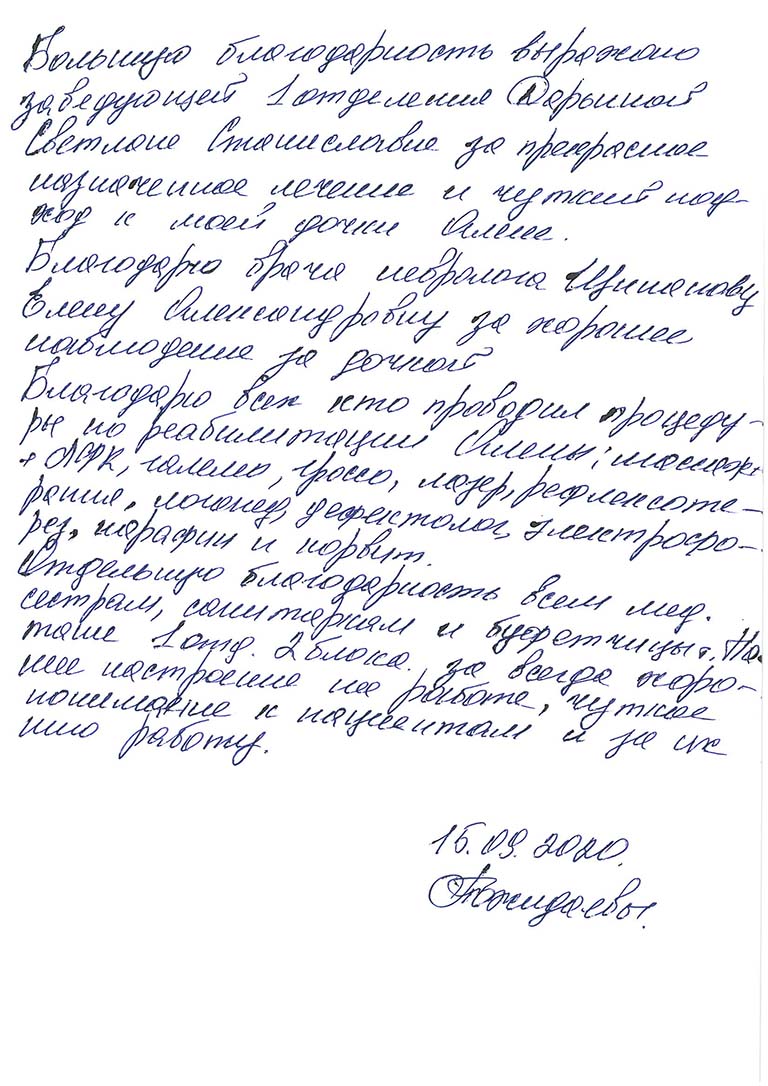 Большую благодарность выражаю
заведующей 1 отделения Дарьиной
Светлане Станиславне за прекрасное
назначенное лечение и чуткий под-
ход к моей дочки Алене.
Благодарю врача невролога
Елену Александровну за хорошее
наблюдение за дочкой
Благодарю всех кто проводил процеду-
ры по реабилитации Алены; массаж
+ ЛФК, галелео, гроссо, лазер, рефлексоте-
рапия, логопед, дефектолог, электрофо-
рез, парафин и корвит.
Отдельную благодарность всем мед.
сестрам, санитаркам и буфетчицы. На-
таше 1 отд. 2 блока. за всегда хоро-
шее настроение на работе, чуткое
понимание к пациентам и за их
работу.
15.09.2020.